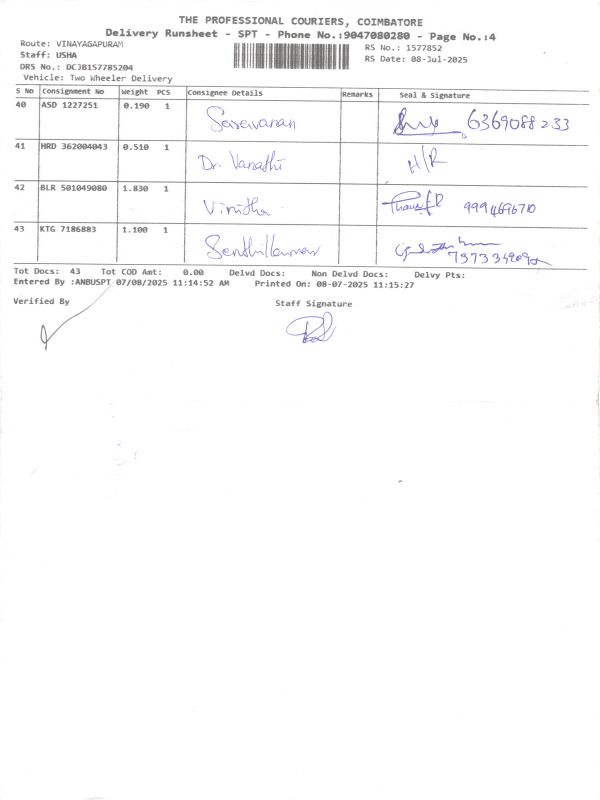 THE PROFESSIONAL COURIERS, COIMBATORE
Delivery Runsheet - SPT - Phone No.:9047080280 - Page No.:4
Route: VINAYAGAPURAM
RS No.: 1577852
Staff: USHA
RS Date: 08-Jul-2025
DRS No.: DCJB157785204
Vehicle: Two Wheeler Delivery
S No Consignment No Weight PCS Consignee Details Remarks Seal & Signature
40 ASD 1227251 0.190 1 Saravanan 6369088233
41 HRD 362004043 0.510 1 Dr. Vanathi H/R
42 BLR 501049080 1.830 1 Vinitha 9994696710
43 KTG 7186883 1.100 1 Senthilkumar
Tot Docs: 43 Tot COD Amt: 0.00 Delvd Docs: Non Delvd Docs: Delvy Pts:
Entered By :ANBUSPT 07/08/2025 11:14:52 AM Printed On: 08-07-2025 11:15:27
Verified By Staff Signature